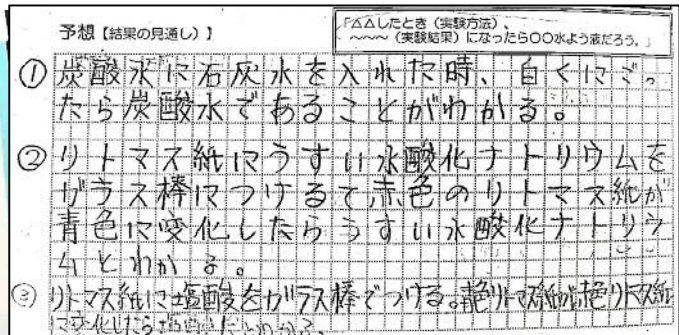 予想【結果の見通し】】
「△△したとき（実験方法）、
～～～（実験結果）になったら○○水よう液だろう。」
① 炭酸水に石灰水を入れた時、白くにごっ
たら炭酸水であることがわかる。
② リトマス紙にうすい水酸化ナトリウムを
ガラス棒につけるて赤色のリトマス紙が
青色に変化したらうすい水酸化ナトリウ
ムとわかる。
③ リトマス紙に塩酸をガラス棒でつける。青色リトマス紙が赤色リトマス紙
に変化したら塩酸だとわかる。